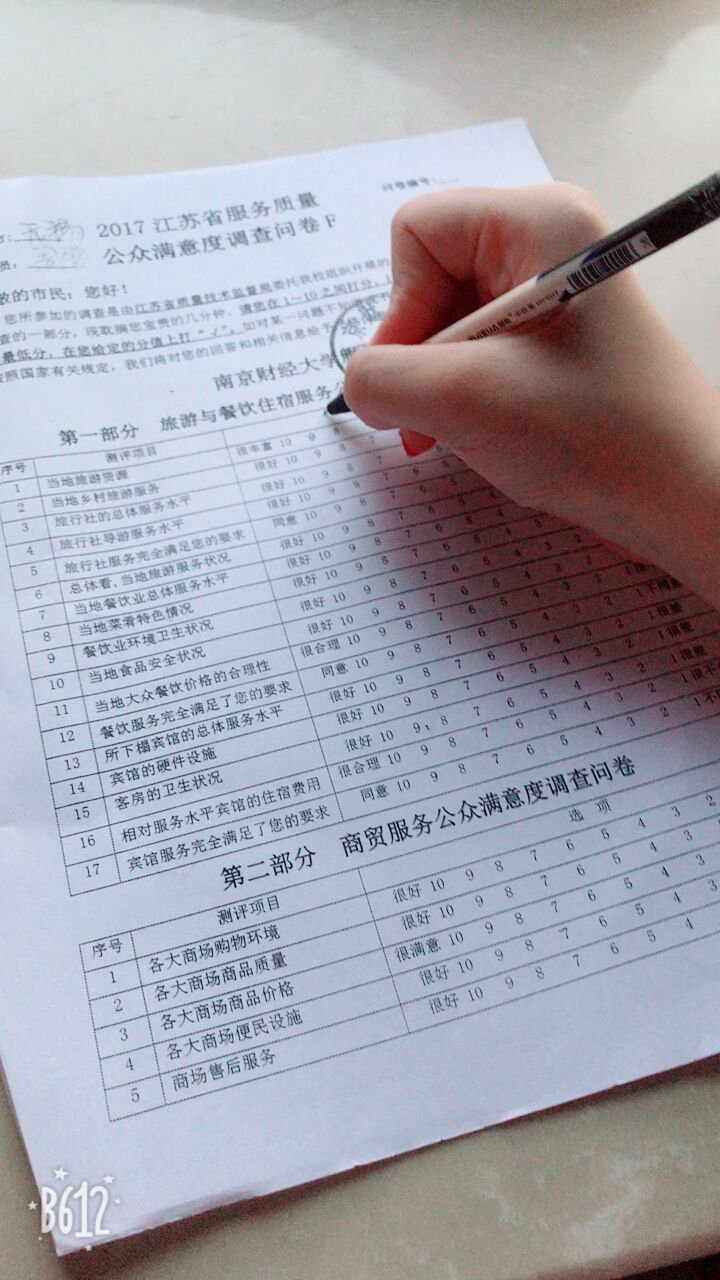 问卷编号:
2017江苏省服务质量
公众满意度调查问卷F
员:
的市民:您好!
您所参加的调查是由江苏省质量技术监督局委托我校组织开展的
查的一部分，现耽搁您宝贵的几分钟，请您在1—10之间打分，1
量低分，在您给定的分值上打“√”，如对某一问题不知道或不
按照国家有关规定，我们将对您的回答和相关信息给予
南京财经大学
第一部分 旅游与餐饮住宿服务公
序号 测评项目
1 当地旅游资源 很丰富 10 9 8
2 当地乡村旅游服务 很好 10 9 8 7
3 旅行社的总体服务水平 很好 10 9 8 7 6
4 旅行社导游服务水平 很好 10 9 8 7 6 5
5 旅行社服务完全满足您的要求 同意 10 9 8 7 6 5
6 总体看,当地旅游服务状况 很好 10 9 8 7 6 5 4
7 当地餐饮业总体服务水平 很好 10 9 8 7 6 5 4 3
8 当地菜肴特色情况 很好 10 9 8 7 6 5 4 3
9 餐饮业环境卫生状况 很好 10 9 8 7 6 5 4 3 2
10 当地食品安全状况 很好 10 9 8 7 6 5 4 3 2
11 当地大众餐饮价格的合理性 很合理 10 9 8 7 6 5 4 3 2 1
12 餐饮服务完全满足了您的要求 同意 10 9 8 7 6 5 4 3 2 1
13 所下榻宾馆的总体服务水平 很好 10 9 8 7 6 5 4 3 2 1
14 宾馆的硬件设施 很好 10 9 8 7 6 5 4 3 2 1
15 客房的卫生状况 很好 10 9 8 7 6 5 4 3 2 1
16 相对服务水平宾馆的住宿费用 很合理 10 9 8 7 6 5 4 3 2 1
17 宾馆服务完全满足了您的要求 同意 10 9 8 7 6 5 4 3 2 1
第二部分 商贸服务公众满意度调查问卷
序号 测评项目 选 项
1 各大商场购物环境 很好 10 9 8 7 6 5 4 3 2
2 各大商场商品质量 很好 10 9 8 7 6 5 4 3 2
3 各大商场商品价格 很满意 10 9 8 7 6 5 4 3
4 各大商场便民设施 很好 10 9 8 7 6 5 4 3
5 商场售后服务 很好 10 9 8 7 6 5 4
B612